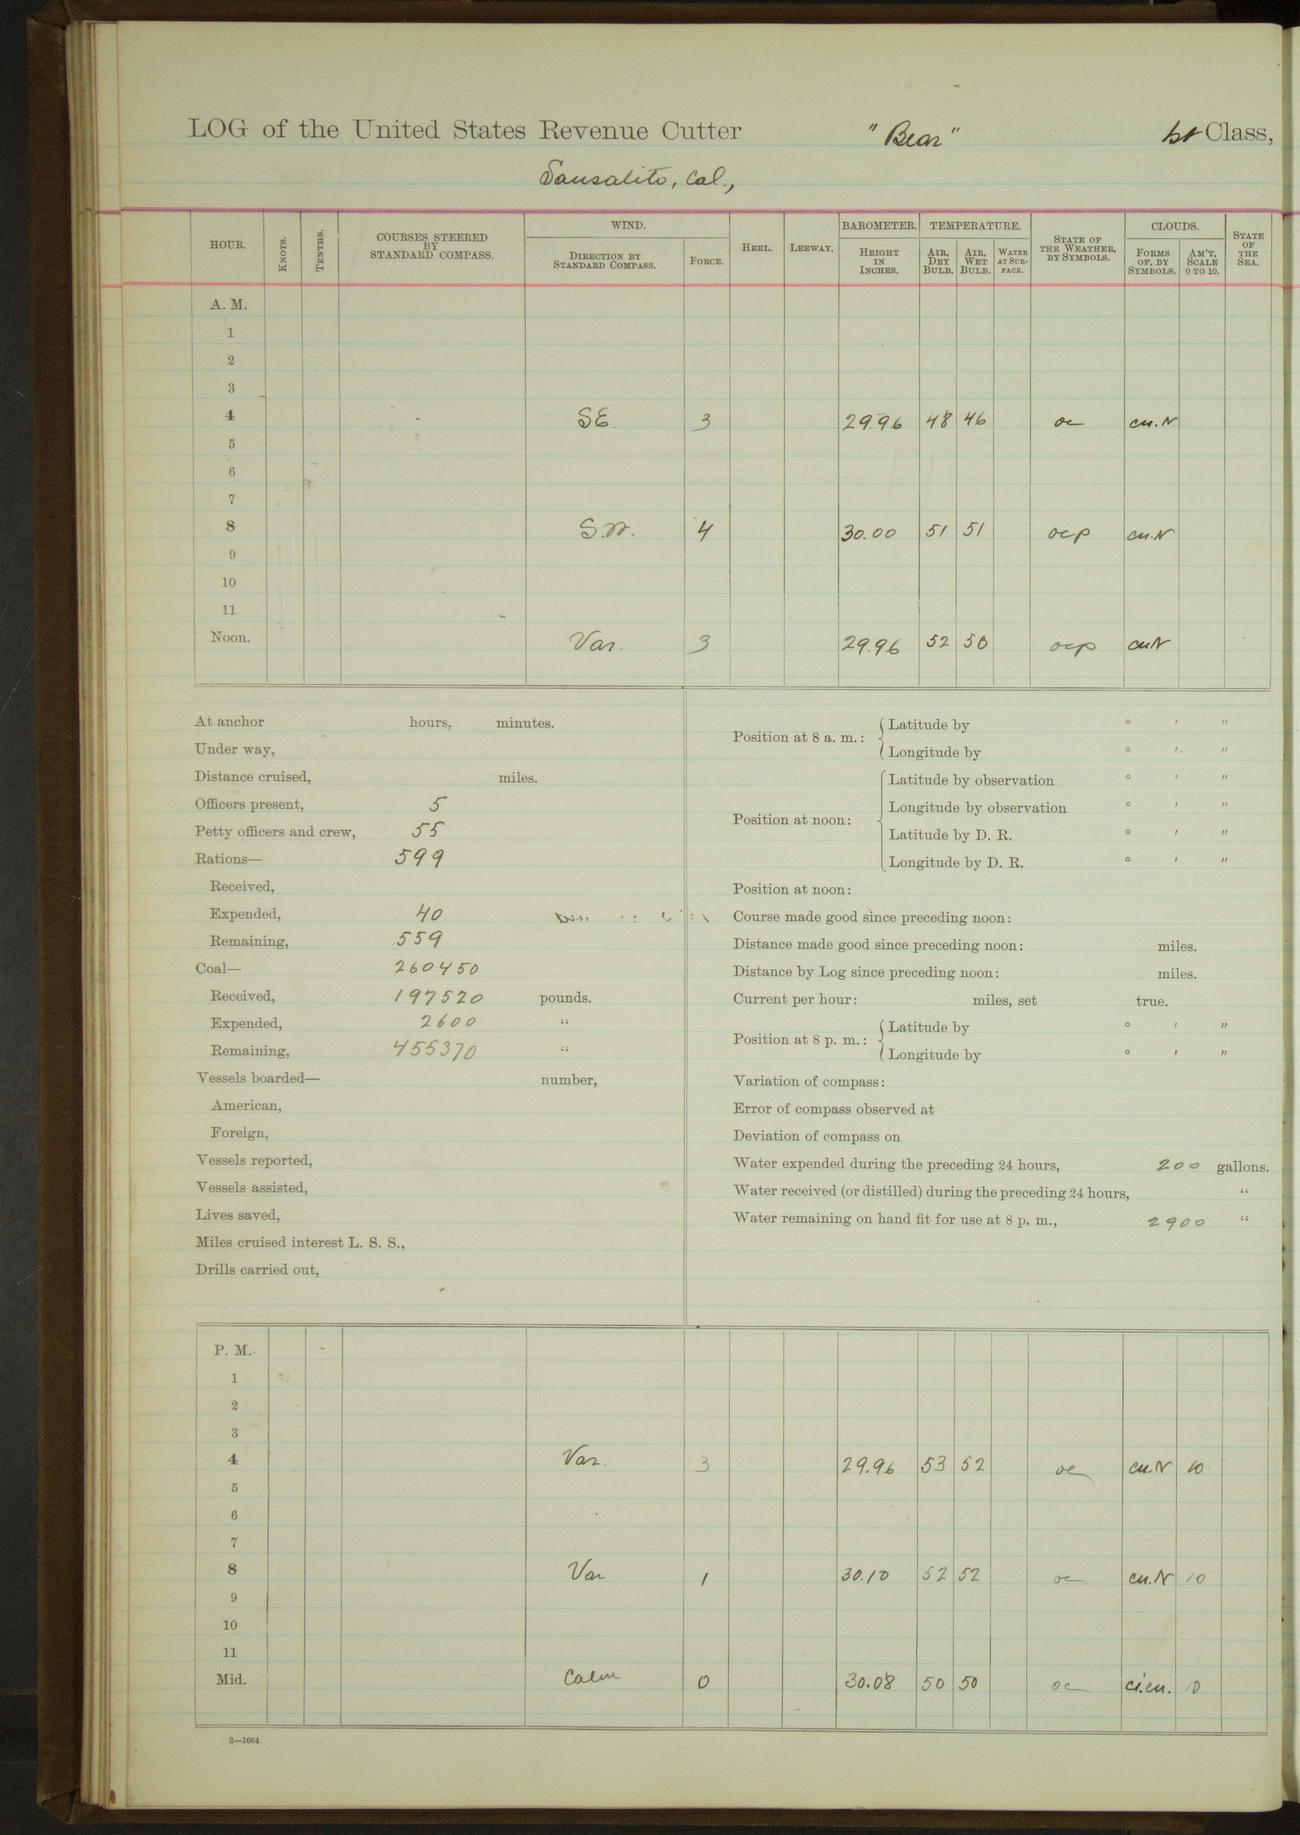 LOG of the United States Revenue Cutter "Bear" 1st Class,
Sausalito, Cal.,
HOUR. KNOTS. TENTHS. COURSES STEERED BY STANDARD COMPASS. WIND. DIRECTION BY STANDARD COMPASS. FORCE. HEEL. LEEWAY. BAROMETER. HEIGHT IN INCHES. TEMPERATURE. AIR, DRY BULB. AIR, WET BULB. WATER AT SURFACE. STATE OF THE WEATHER, BY SYMBOLS. CLOUDS. FORMS OF, BY SYMBOLS. AM'T, SCALE 0 TO 10. STATE OF THE SEA.
A. M.
1
2
3
4 SE. 3 29.96 48 46 oc cu.N
5
6
7
8 S.W. 4 30.00 51 51 ocp cu.N
9
10
11
Noon. Var. 3 29.96 52 50 ocp cuN
At anchor hours, minutes.
Under way,
Distance cruised, miles.
Officers present, 5
Petty officers and crew, 55
Rations— 599
Received,
Expended, 40
Remaining, 559
Coal— 260450
Received, 197520 pounds.
Expended, 2600 "
Remaining, 455370 "
Vessels boarded— number,
American,
Foreign,
Vessels reported,
Vessels assisted,
Lives saved,
Miles cruised interest L. S. S.,
Drills carried out,
Position at 8 a. m.: Latitude by ° ′ ″
Longitude by ° ′ ″
Position at noon: Latitude by observation ° ′ ″
Longitude by observation ° ′ ″
Latitude by D. R. ° ′ ″
Longitude by D. R. ° ′ ″
Position at noon:
Course made good since preceding noon:
Distance made good since preceding noon: miles.
Distance by Log since preceding noon: miles.
Current per hour: miles, set true.
Position at 8 p. m.: Latitude by ° ′ ″
Longitude by ° ′ ″
Variation of compass:
Error of compass observed at
Deviation of compass on
Water expended during the preceding 24 hours, 200 gallons.
Water received (or distilled) during the preceding 24 hours, "
Water remaining on hand fit for use at 8 p. m., 2900 "
P. M.
1
2
3
4 Var. 3 29.96 53 52 oc cu.N 10
5
6
7
8 Var 1 30.10 52 52 oc cu.N 10
9
10
11
Mid. Calm 0 30.08 50 50 oc ci.cu. 10
2—1664